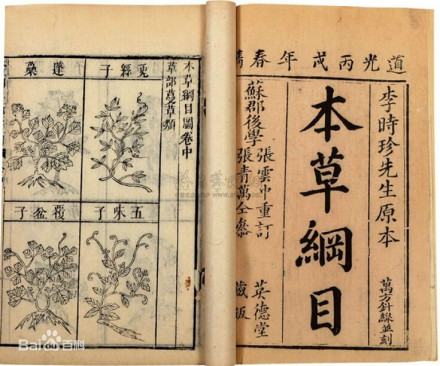 道光丙戌年春鐫
李時珍先生原本
本草綱目
萬方針線並刻
蘇郡後學
張雲中重訂
張青萬仝參
英德堂
藏版
本草綱目圖卷中
草部蔓草類
菟絲子
蓬蘽
五味子
覆盆子
Bai百科